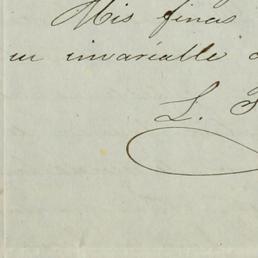 Mis finas
su invariable
L.